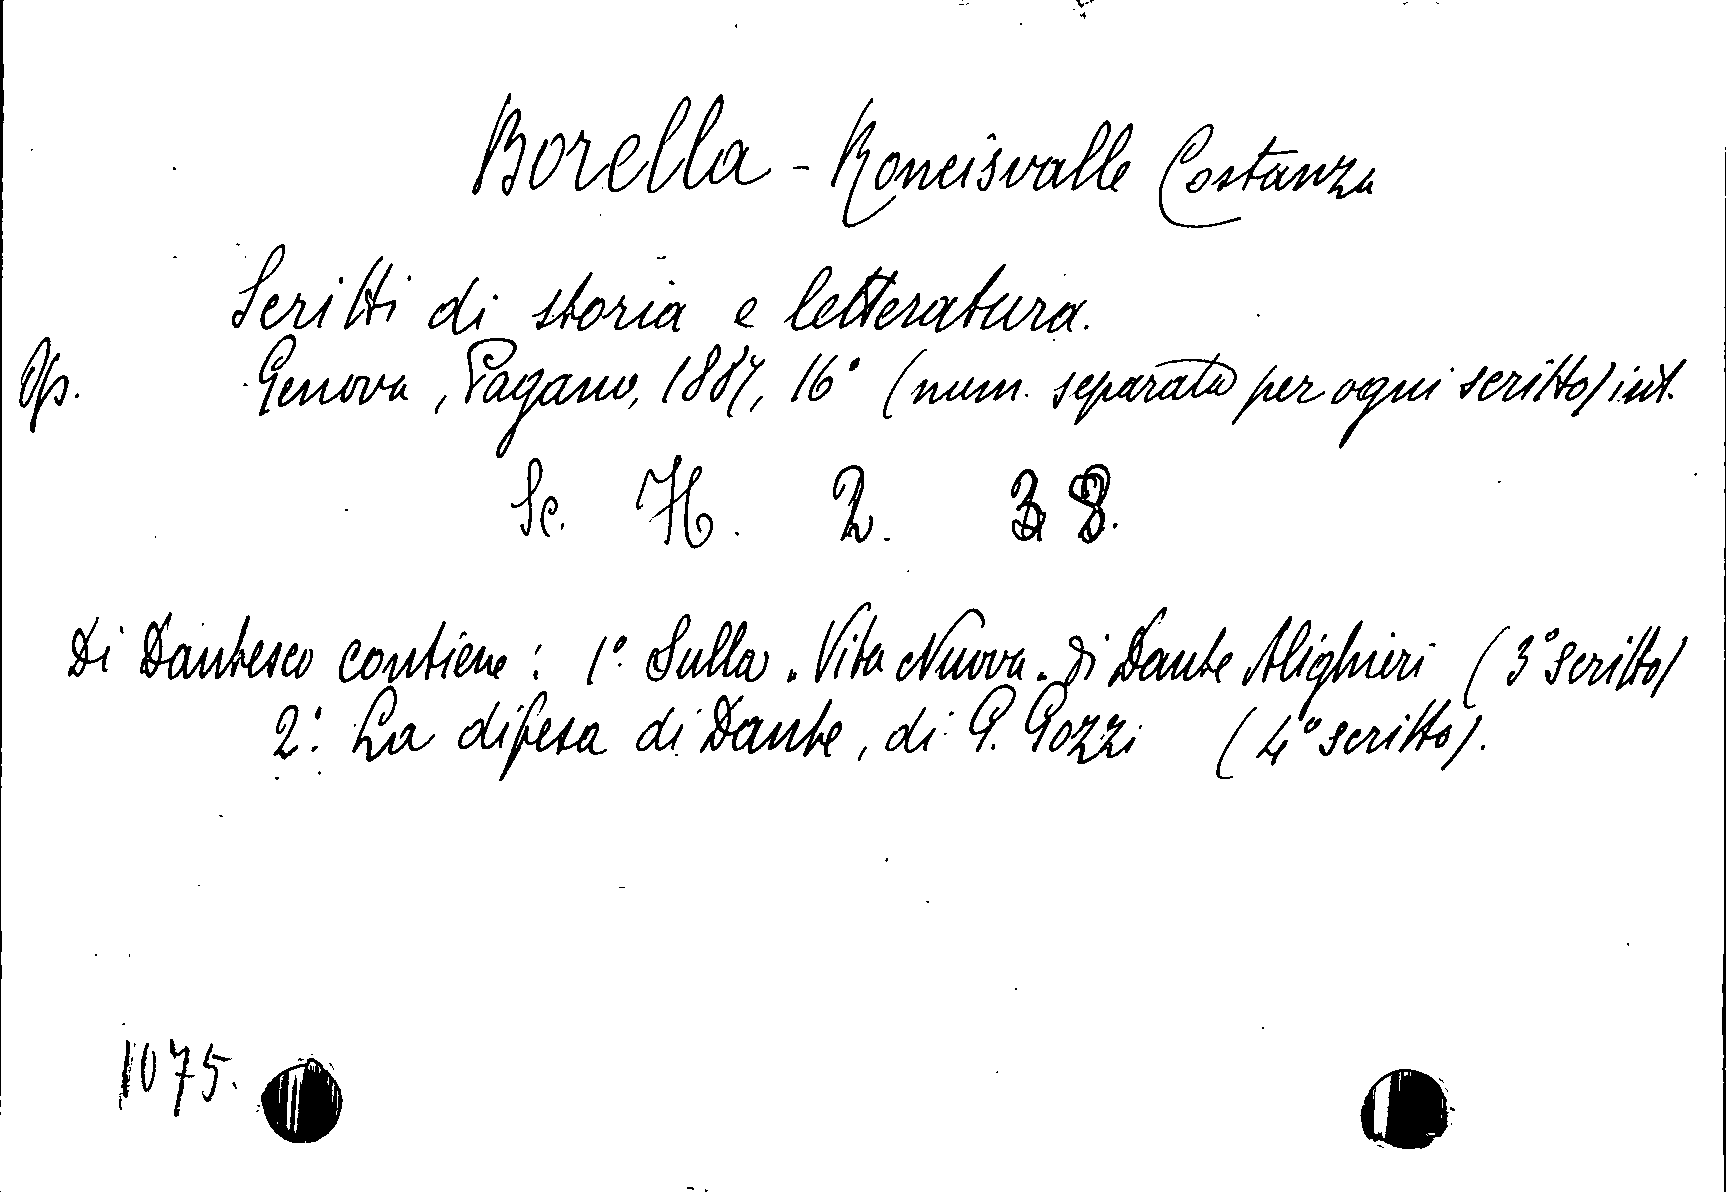 Borella - Roncisvalle Costanza
Scritti di storia e letteratura.
Op. Genova, Pagano, 1887, 16° (num. separata per ogni scritto) int.
Sc. H. 2. 38.
Di Dantesco contiene: 1°. Sulla "Vita Nuova" di Dante Alighieri (3° scritto)
2°. La difesa di Dante, di G. Gozzi (4° scritto).
1075.